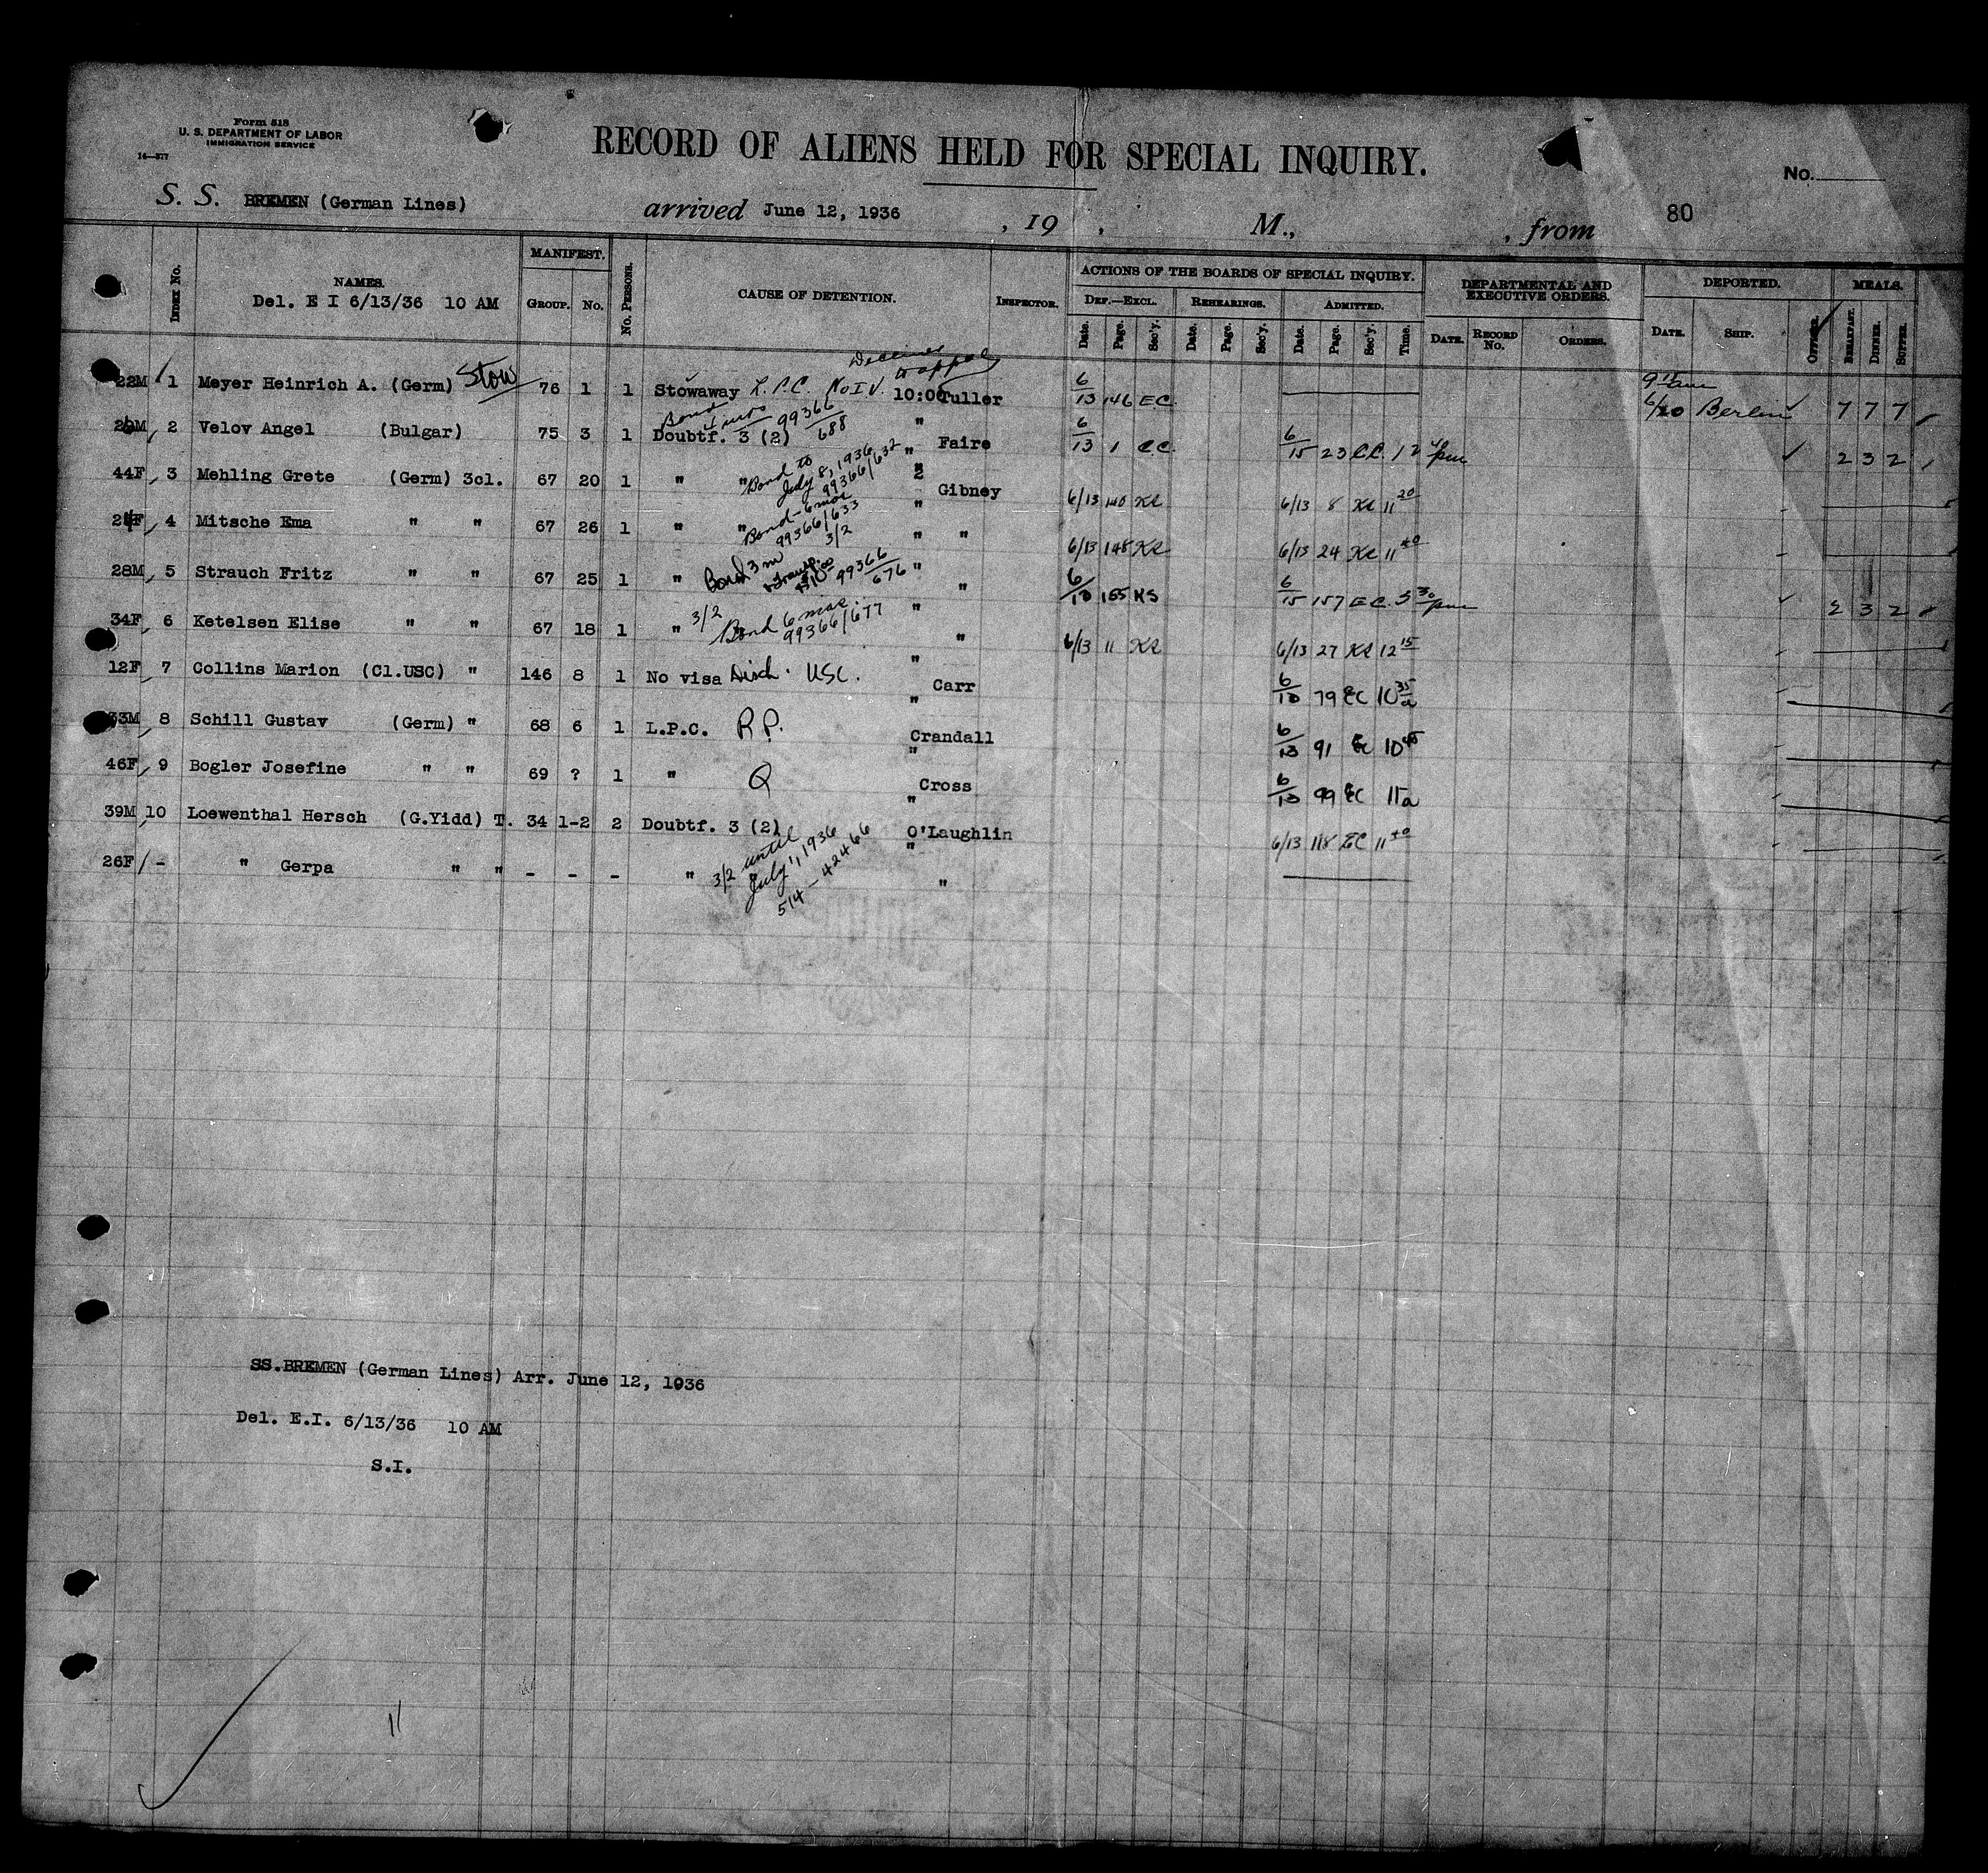 Form 518
U. S. DEPARTMENT OF LABOR
IMMIGRATION SERVICE
14—377
RECORD OF ALIENS HELD FOR SPECIAL INQUIRY.
No.
S. S. BREMEN (German Lines) arrived June 12, 1936 , 19 , M., , from 80
Index No. NAMES. MANIFEST. No. Persons. CAUSE OF DETENTION. Inspector. ACTIONS OF THE BOARDS OF SPECIAL INQUIRY. DEPARTMENTAL AND EXECUTIVE ORDERS. DEPORTED. MEALS.
Del. E I 6/13/36 10 AM Group. No. Def.—Excl. Rehearings. Admitted.
Date. Page. Sec'y. Date. Page. Sec'y. Date. Page. Sec'y. Time. Date. Record No. Orders. Date. Ship. Officer. Breakfast. Dinner. Supper.
22M 1 Meyer Heinrich A. (Germ) Stow 76 1 1 Stowaway L.P.C. No I.V. Declines to appeal 10:00 Tuller 6/13 146 E.C. 9 15 am 6/20 Berlin 7 7 7
2 Velov Angel (Bulgar) 75 3 1 Doubtf. 3 (2) Bond 4 mos 99366/688 " Faire 6/13 1 C.C. 6/15 23 C.C. 1 2 pm 2 3 2
44F 3 Mehling Grete (Germ) 3cl. 67 20 1 " " Bond to July 8, 1936 99366/632 " Gibney 6/13 140 6/13 8 11 20
4 Mitsche Ema " " 67 26 1 " " Bond-6 mos 99366/633 3/2 " " 6/13 148 6/13 24 11 40
28M 5 Strauch Fritz " " 67 25 1 " Bond 3 m 99366/676 " " 6/13 155 KS 6/15 157 E.C. 5 30 pm 2 3 2
34F 6 Ketelsen Elise " " 67 18 1 " 3/2 Bond 6 mos. 99366/677 " " 6/13 11 6/13 27 12 15
12F 7 Collins Marion (Cl.USC) " 146 8 1 No visa Disch. USC. " Carr 6/13 79 EC 10 35 a
33M 8 Schill Gustav (Germ) " 68 6 1 L.P.C. R.P. " Crandall 6/13 91 EC 10 45
46F 9 Bogler Josefine " " 69 ? 1 " Q " Cross 6/13 99 EC 11 a
39M 10 Loewenthal Hersch (G.Yidd) T. 34 1-2 2 Doubtf. 3 (2) " O'Laughlin 6/13 118 EC 11 40
26F - " Gerpa " " - - - " 3/2 until July 1, 1936 514-42466 " "
SS.BREMEN (German Lines) Arr. June 12, 1936
Del. E.I. 6/13/36 10 AM
S.I.
11